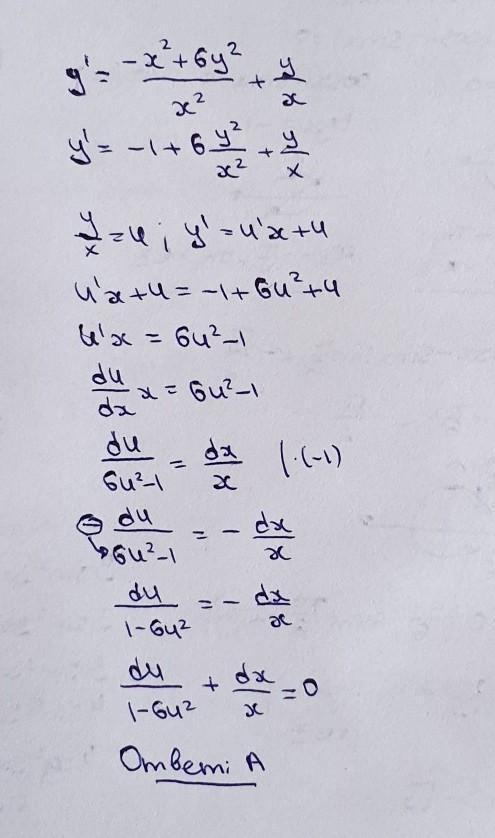 y' = \frac{-x^2+6y^2}{x^2} + \frac{y}{x}
y' = -1+6\frac{y^2}{x^2} + \frac{y}{x}
\frac{y}{x} = u ; y' = u'x+u
u'x+u = -1+6u^2+u
u'x = 6u^2-1
\frac{du}{dx} x = 6u^2-1
\frac{du}{6u^2-1} = \frac{dx}{x} | \cdot (-1)
- \frac{du}{6u^2-1} = - \frac{dx}{x}
\frac{du}{1-6u^2} = - \frac{dx}{x}
\frac{du}{1-6u^2} + \frac{dx}{x} = 0
Ответ: A